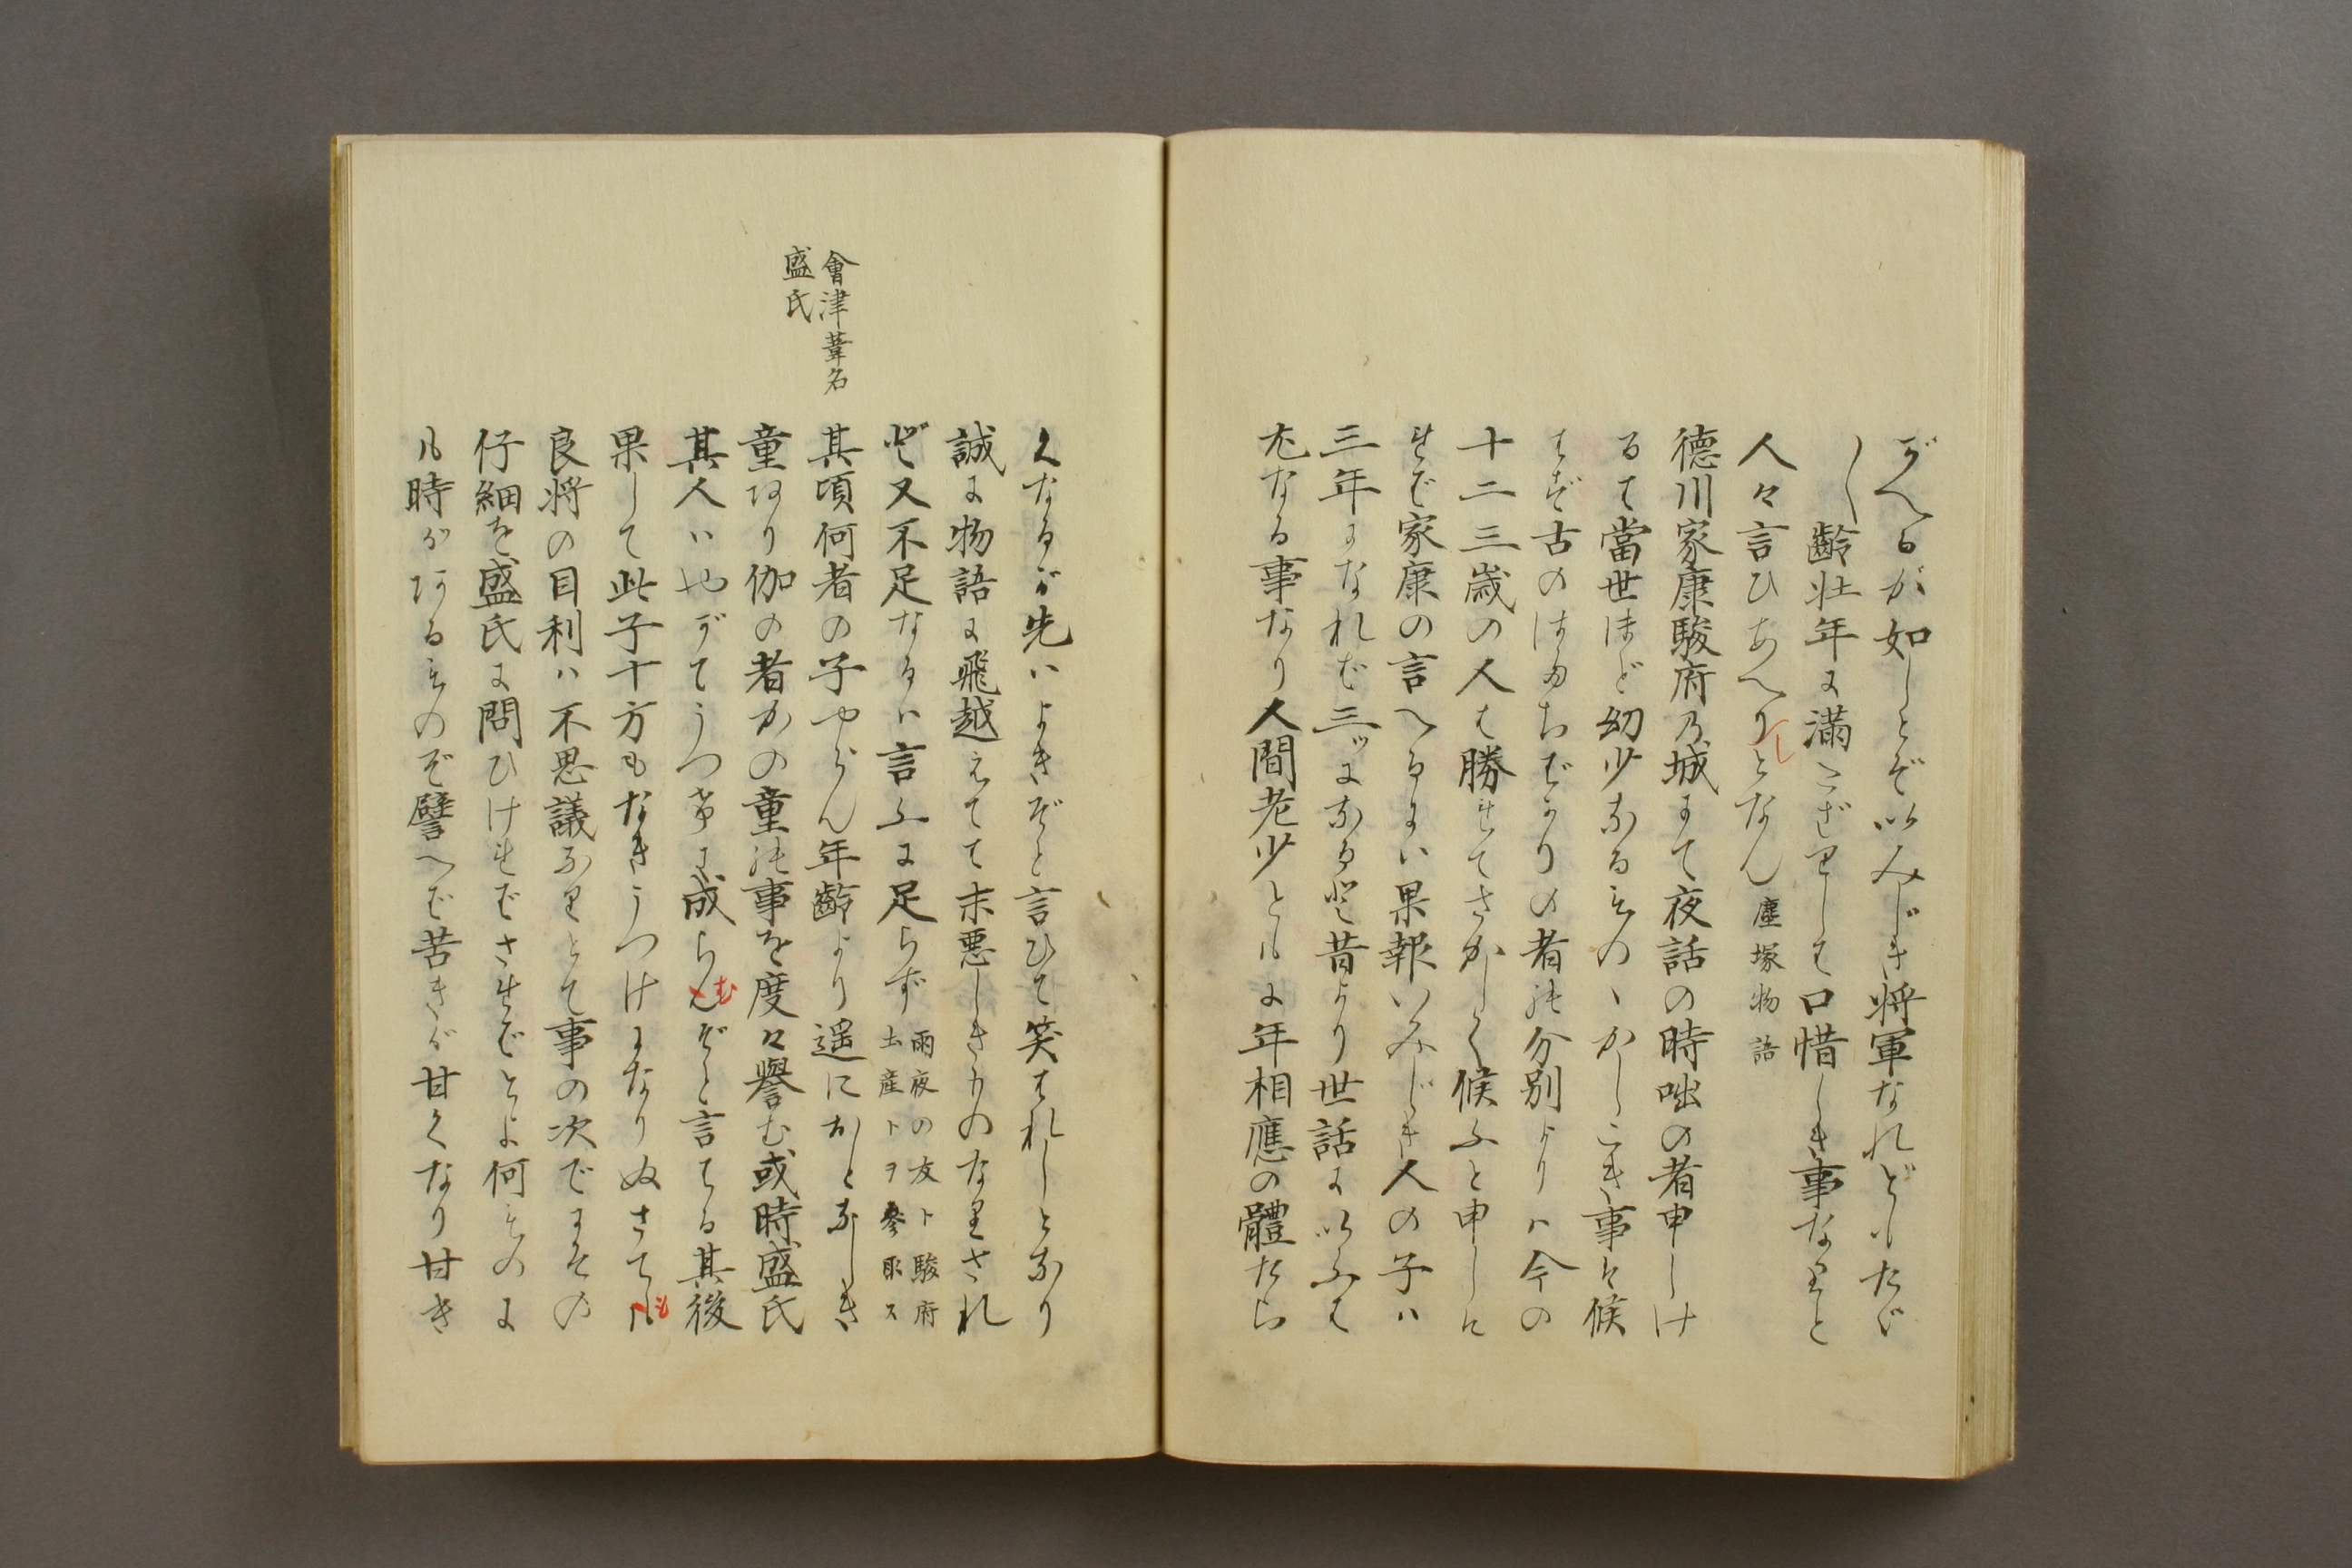 がへるが如しとぞいみじき将軍なれどもたゞ
し〳〵齢壮年に満たざりしは口惜しき事なりと
人々言ひあへりしとなん塵塚物語
徳川家康駿府乃城にて夜話の時咄の者申しけ
るは當世ほど幼少なるものゝかしこき事は候
はず古のはたちばかりの者の分別よりハ今の
十二三歳の人は勝れてさかしく候ふと申しに
ければ家康の言へるにハ果報いみじき人の子ハ
三年になれば三ッになると昔より世話にいふは
尤なる事なり人間老少ともに年相應の體たら
くなるが先ハよきぞと言ひて笑はれしとなり
誠に物語に飛越えてて末悪しきものなりされ
ど又不足なるハ言ふに足らず雨夜の友ト駿府
土産トヲ参取ス
會津葦名
盛氏
其頃何者の子やらん年齢より遥におとなしき
童あり伽の者かの童の事を度々譽む或時盛氏
其人ハやがてうつけに成らむぞと言はる其後
果して此子十方もなきうつけになりぬさても
良将の目利ハ不思議なりとて事の次でにその
仔細を盛氏に問ひければさればとよ何ものに
も時があるものぞ譬へば苦きが甘くなり甘き